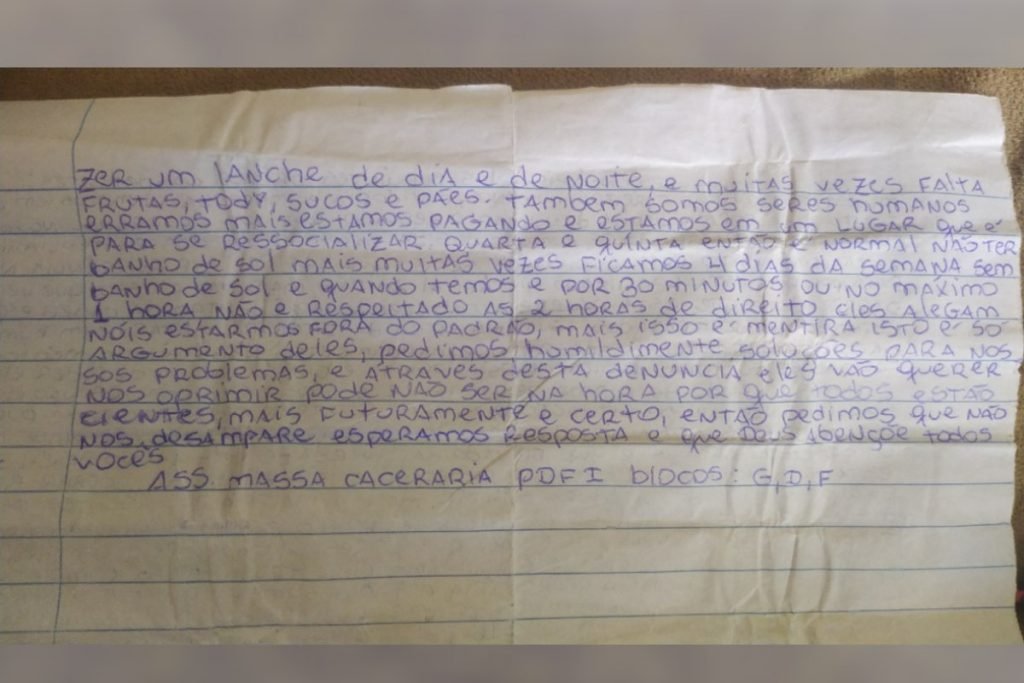 ZER UM LANCHE de diA E de NOITE, E MUITAS VEZES FALTA
FRUTAS, TODY, SUCOS E PÃES. TAMBEM SOMOS SERES HUMANOS
ERRAMOS MAIS ESTAMOS PAGANDO E ESTAMOS EM UM LUGAR QUE É
PARA SE RESSOCIALIZAR. QUARTA E QUINTA ENTÃO E NORMAL NÃO TER
BANHO DE SOL MAIS MUITAS VEZES FICAMOS 4 DIAS DA SEMANA SEM
BANHO DE SOL E QUANDO TEMOS E POR 30 MINUTOS OU NO MÁXIMO
1 HORA NÃO E RESPEITADO AS 2 HORAS DE DIREITO ELES ALEGAM
NÓIS ESTARMOS FORA DO PADRÃO, MAIS ISSO E MENTIRA ISTO É SÓ
ARGUMENTO DELES, PEDIMOS HUMILDIMENTE SOLUÇÕES PARA NOS
SOS PROBLEMAS, E ATRAVES DESTA DENUNCIA ELES VÃO QUERER
NOS OPRIMIR PODE NÃO SER NA HORA POR QUE TODOS ESTÃO
CIENTES, MAIS FUTURAMENTE E CERTO, ENTÃO PEDIMOS QUE NÃO
NOS DESAMPARE ESPERAMOS RESPOSTA E QUE DEUS ABENÇÕE TODOS
VOCÊS
ASS. MASSA CACERARIA PDFI BLOCOS: G, D, F